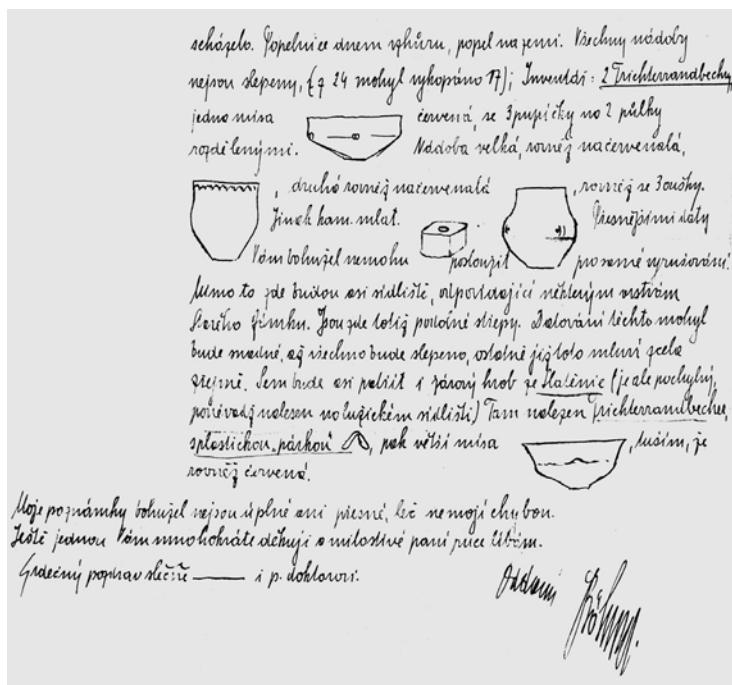 scházelo. Popelnice dnem vzhůru, popel na zemi. Všechny nádoby
nejsou slepeny, (z 24 mohyl vykopáno 17); Inventář: 2 Trichterrandbechry,
jedna mísa červená, se 3 pupíčky na 2 půlky
rozdělenými. Nádoba velká, rovněž načervenalá,
, druhá rovněž načervenalá , rovněž se 3 oušky.
Jinak kam. mlat. Přesnějšími daty
Vám bohužel nemohu posloužit pro samé vyrušování.
Mimo to zde budou asi sídliště, odpovídající některým vrstvám
Starého Zámku. Jsou zde totiž podobné střepy. Datování těchto mohyl
bude snadné, až všechno bude slepeno, ostatně již toto mluví zcela
zřejmě. Sem bude asi patřit i žárový hrob ze Slatěnic (je ale pochybný,
poněvadž nalezen na lužickém sídlišti) Tam nalezen Trichterrandbecher,
s plastickou „páskou“ , pak větší mísa , tuším, že
rovněž červená.
Moje poznámky bohužel nejsou úplné ani přesné, leč ne mojí chybou.
Ještě jednou Vám mnohokráte děkuji a milostivé paní ruce líbám.
Srdečný pozdrav slečně i p. doktorovi.
Oddaný